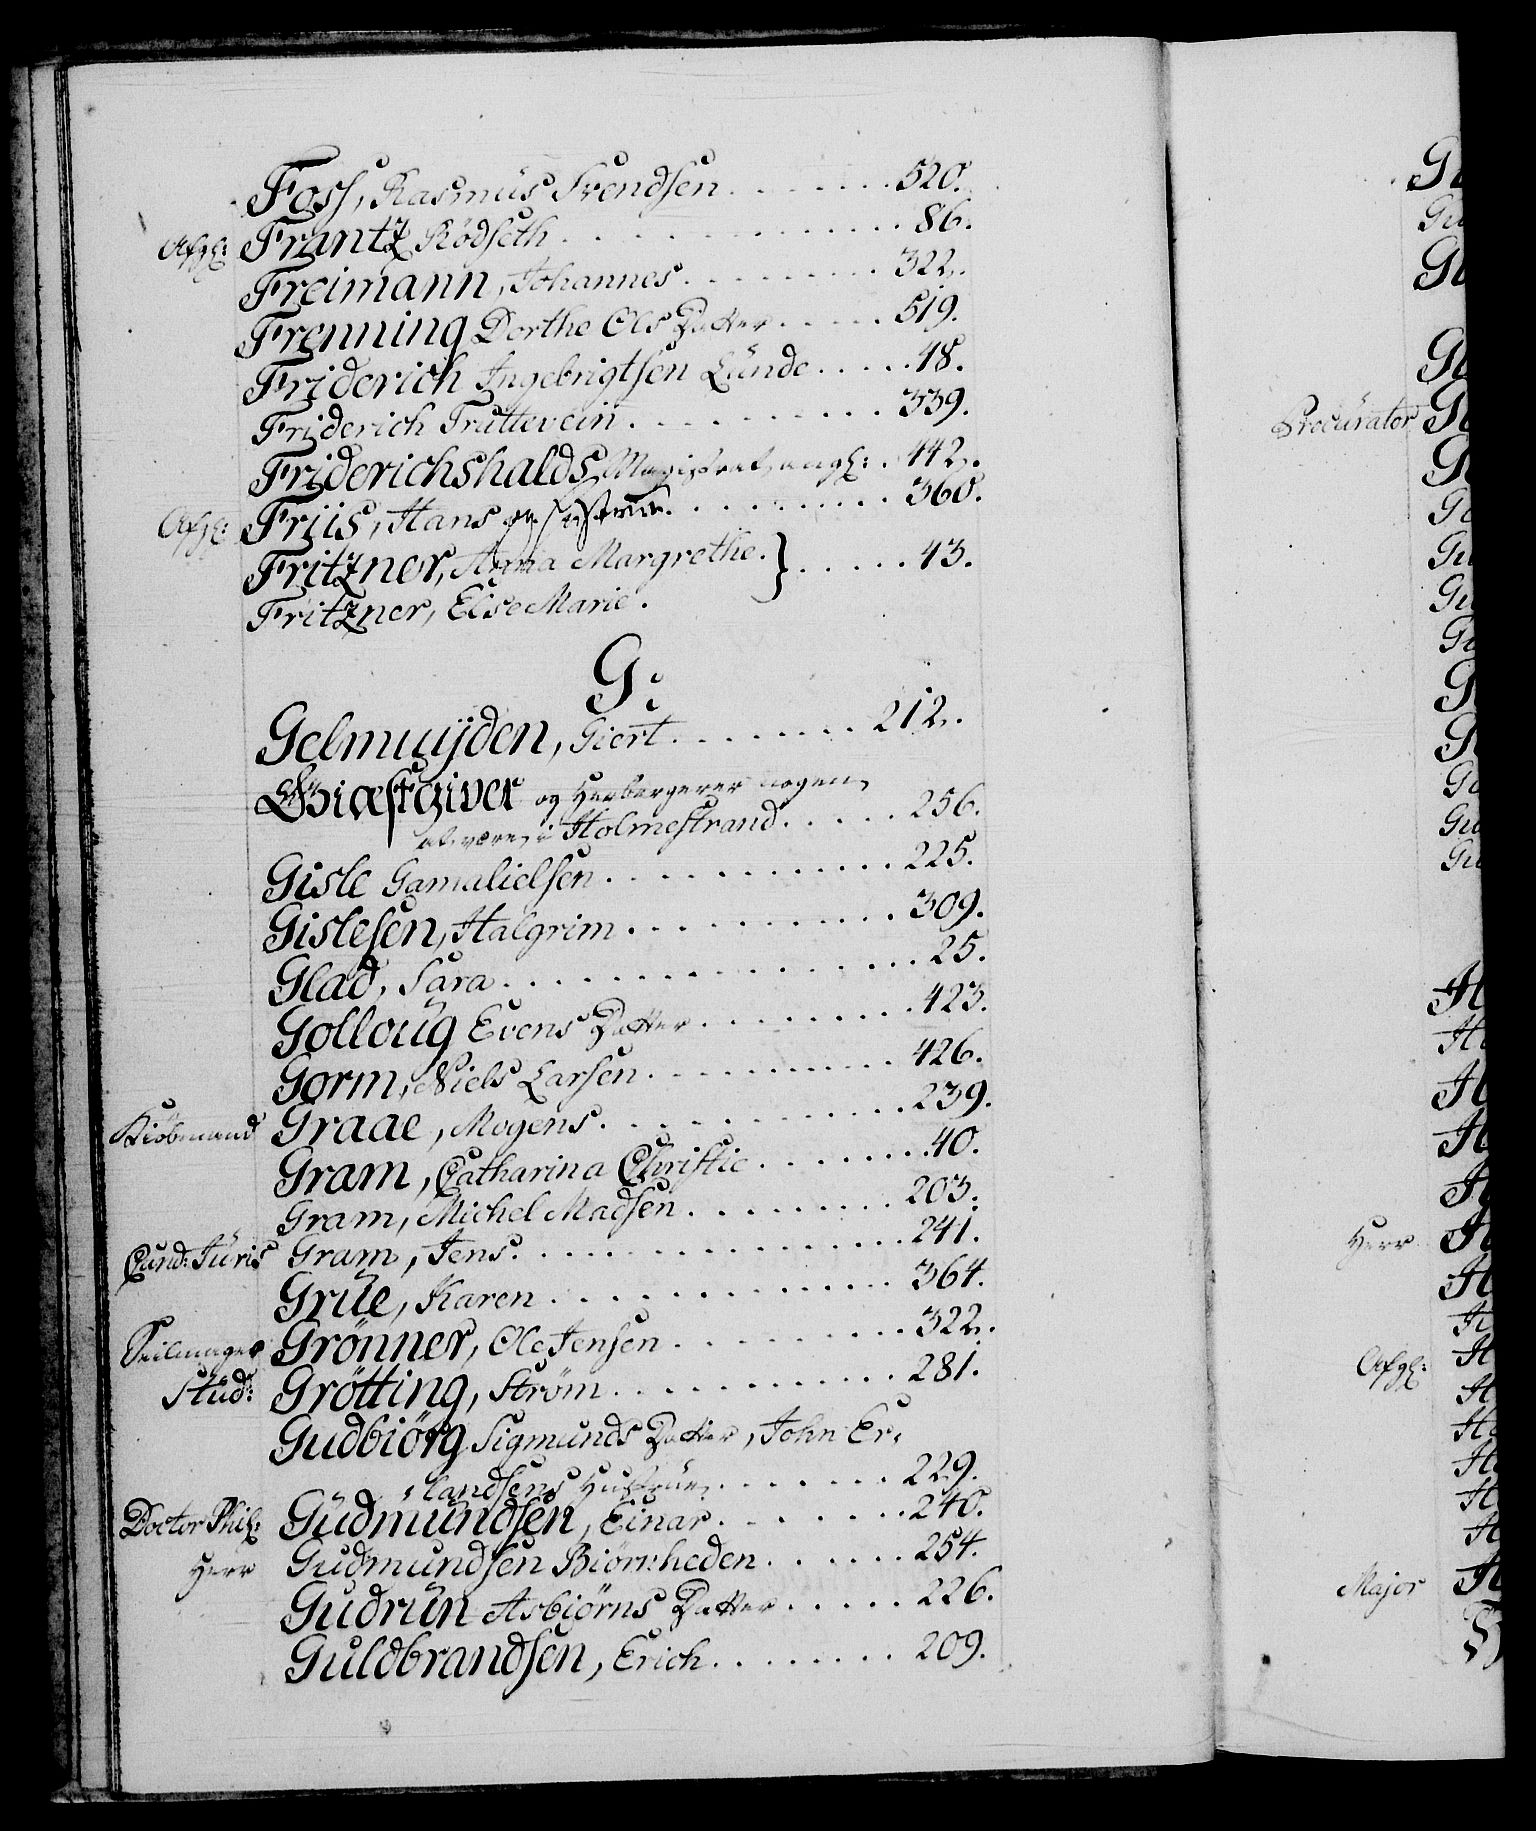 Foss, Rasmus Svendsen . . . . . . . 520.
Afgl: Frantz Rödseth . . . . . . . . . . . . 86.
Freimann, Johannes . . . . . . . . 322.
Frenning Dorthe Ols Datter . . . . . 519.
Friderich Ingebrigtsen Lünde . . . . . 48.
Friderich Truttevein . . . . . . . . . 339.
Friderichshalds Magistrat angl: . 442.
Afgl: Friis, Hans og Hustrue . . . . . . . . . 360.
Fritzner, Anna Margrethe. } . . . . . 43.
Fritzner, Elise Marie.
G.
Gelmuijden, Giert . . . . . . . . 212.
Giæstgiver og Herbergerer nogen
at være, i Holmestrand . . . . . 256.
Gisle Gamalielsen . . . . . . . . . . . . 225.
Gislesen, Halgrim . . . . . . . . . . . 309.
Glad, Sara . . . . . . . . . . . . . . . . 25.
Golloug Evens Datter . . . . . . . . . 423.
Gorm, Niels Larsen . . . . . . . . . . 426.
Kiöbmand Graae, Mogens . . . . . . . . . . . . 239.
Gram, Catharina Christie . . . . . . . . 40.
Gram, Michel Madsen . . . . . . . . . 203.
Cand: Jüris Gram, Jens . . . . . . . . . . . . . . . 241.
Grüe, Karen . . . . . . . . . . . . 364.
Seilmager Grönner, Ole Jensen . . . . . . . . . 322.
Stüd: Grötting, Ström . . . . . . . . . . . . 281.
Gudbiörg Sigmunds Datter, John Er,
landsens Hustrüe, . . . . . . . . 229.
Doctor Phil: Gudmundsen, Einar . . . . . . . . 240.
Herr Gudmundsen Biörnheden . . . . . . 254.
Gudrün Asbiörns Datter . . . . . 226.
Guldbrandsen, Erich . . . . . . . . 209.
Procürator
Herr
Afgl:
Major